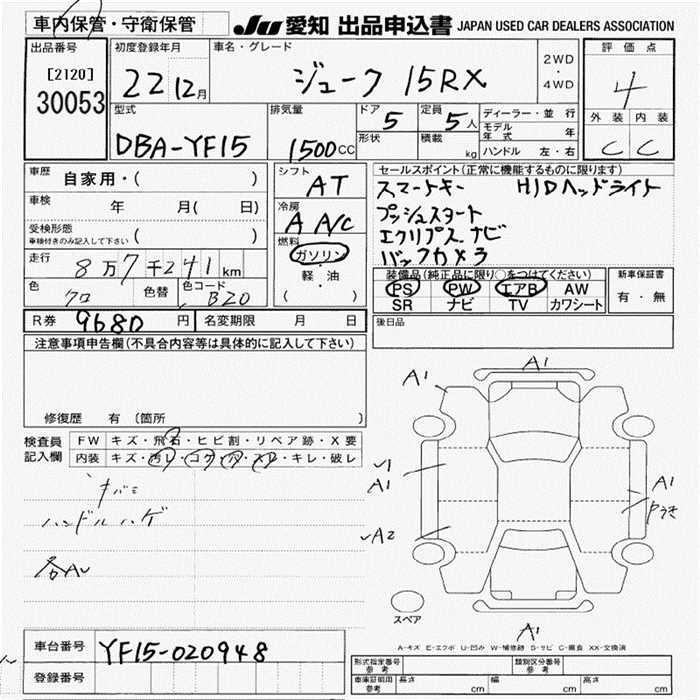 車内保管・守衛保管
JU 愛知 出品申込書 JAPAN USED CAR DEALERS ASSOCIATION
出品番号
[2120]
30053
初度登録年月
22 12月
車名・グレード
ジューク 15RX
2WD
・
4WD
評価点
4
外装 内装
C C
型式
DBA-YF15
排気量
1500cc
ドア
5
定員
5人
形状
積載
kg
ディーラー・並行
モデル年式 年
ハンドル 左・右
車歴
自家用・( )
車検
年 月( 日)
受検形態
車検付きのみ記入して下さい ( )
走行
8万7千241km
色
クロ
色替
色コード
BZ0
シフト
AT
冷房
A A/C
燃料
ガソリン
・
軽・油
( )
セールスポイント(正常に機能するものに限ります)
スマートキー HIDヘッドライト
プッシュスタート
エクリプス ナビ
バックカメラ
装備品(純正品に限り○をつけてください)
PS PW エアB AW
SR ナビ TV カワシート
新車保証書
有・無
R券 9680 円
名変期限 月 日
後日品
注意事項申告欄(不具合内容等は具体的に記入して下さい)
修復歴 有 (箇所 )
検査員記入欄
FW キズ・飛石・ヒビ割・リペア跡・X要
内装 キズ・汚レ・コゲ・穴・スレ・キレ・破レ
ハンドルハゲ
各AU
A1
A1
A1
A2
A1
A1
スペア
A-キズ E-エクボ U-凹み W-補修跡 S-サビ C-腐食 XX-交換済
車台番号
YF15-020948
登録番号
形式指定番号
参考
類別区分番号
参考
車庫証明用
参考
長さ cm
幅 cm
高さ cm